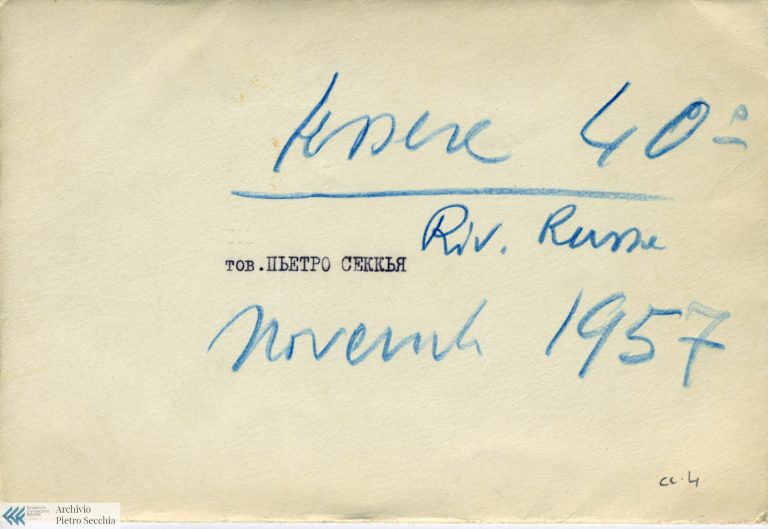 Tessere 40º
Riv. Russe
тов.ПЬЕТРО СЕККЬЯ
Novemb 1957
cc. 4
Archivio
Pietro Secchia